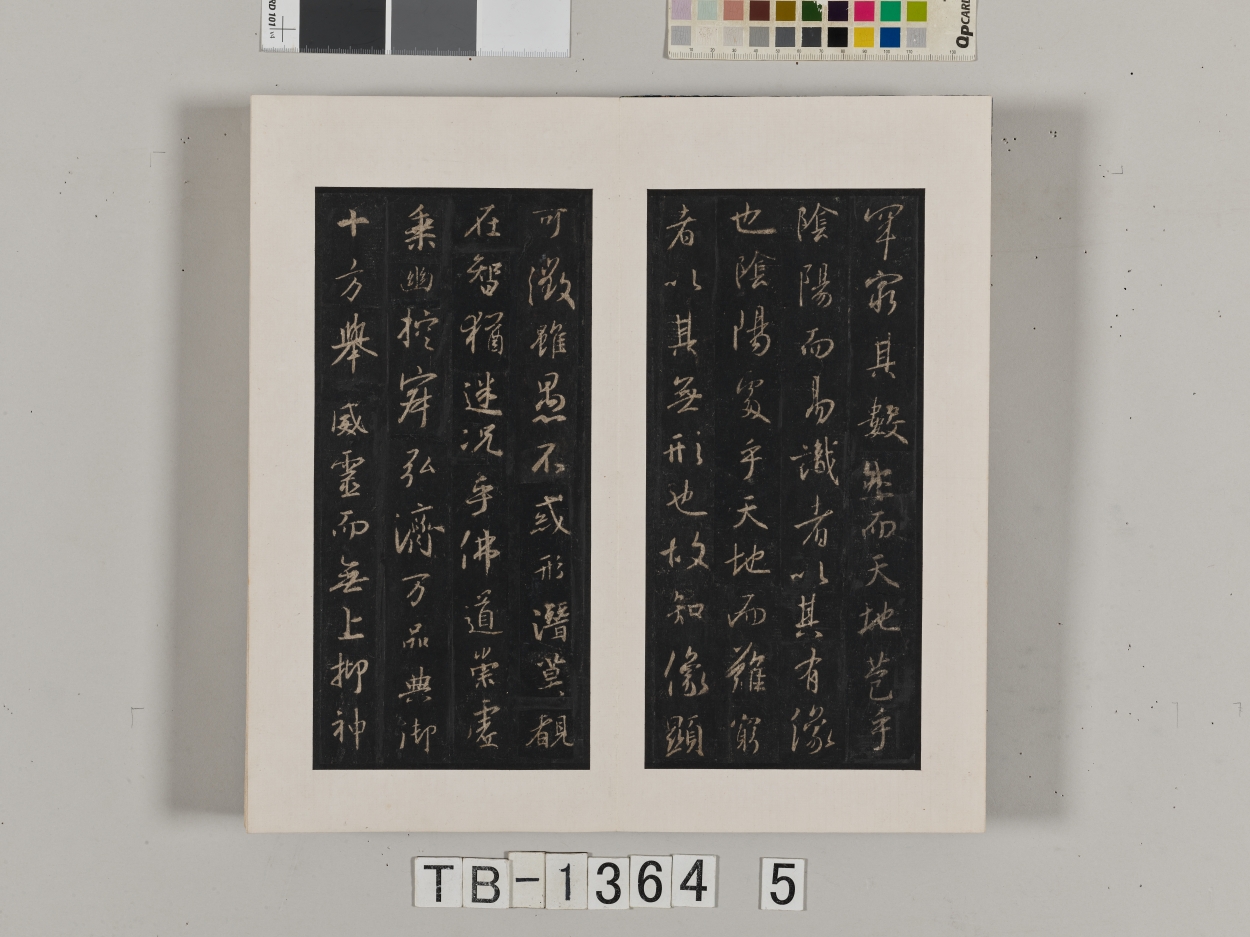 罕窮其數然而天地苞乎
陰陽而易識者以其有像
也陰陽處乎天地而難窮
者以其無形也故知像顯
可徵雖愚不惑形潛莫覩
在智猶迷況乎佛道崇虛
乗幽控寂弘濟万品典御
十方舉威靈而無上抑神
TB-1364 5
RD 101 v4
QpCARD